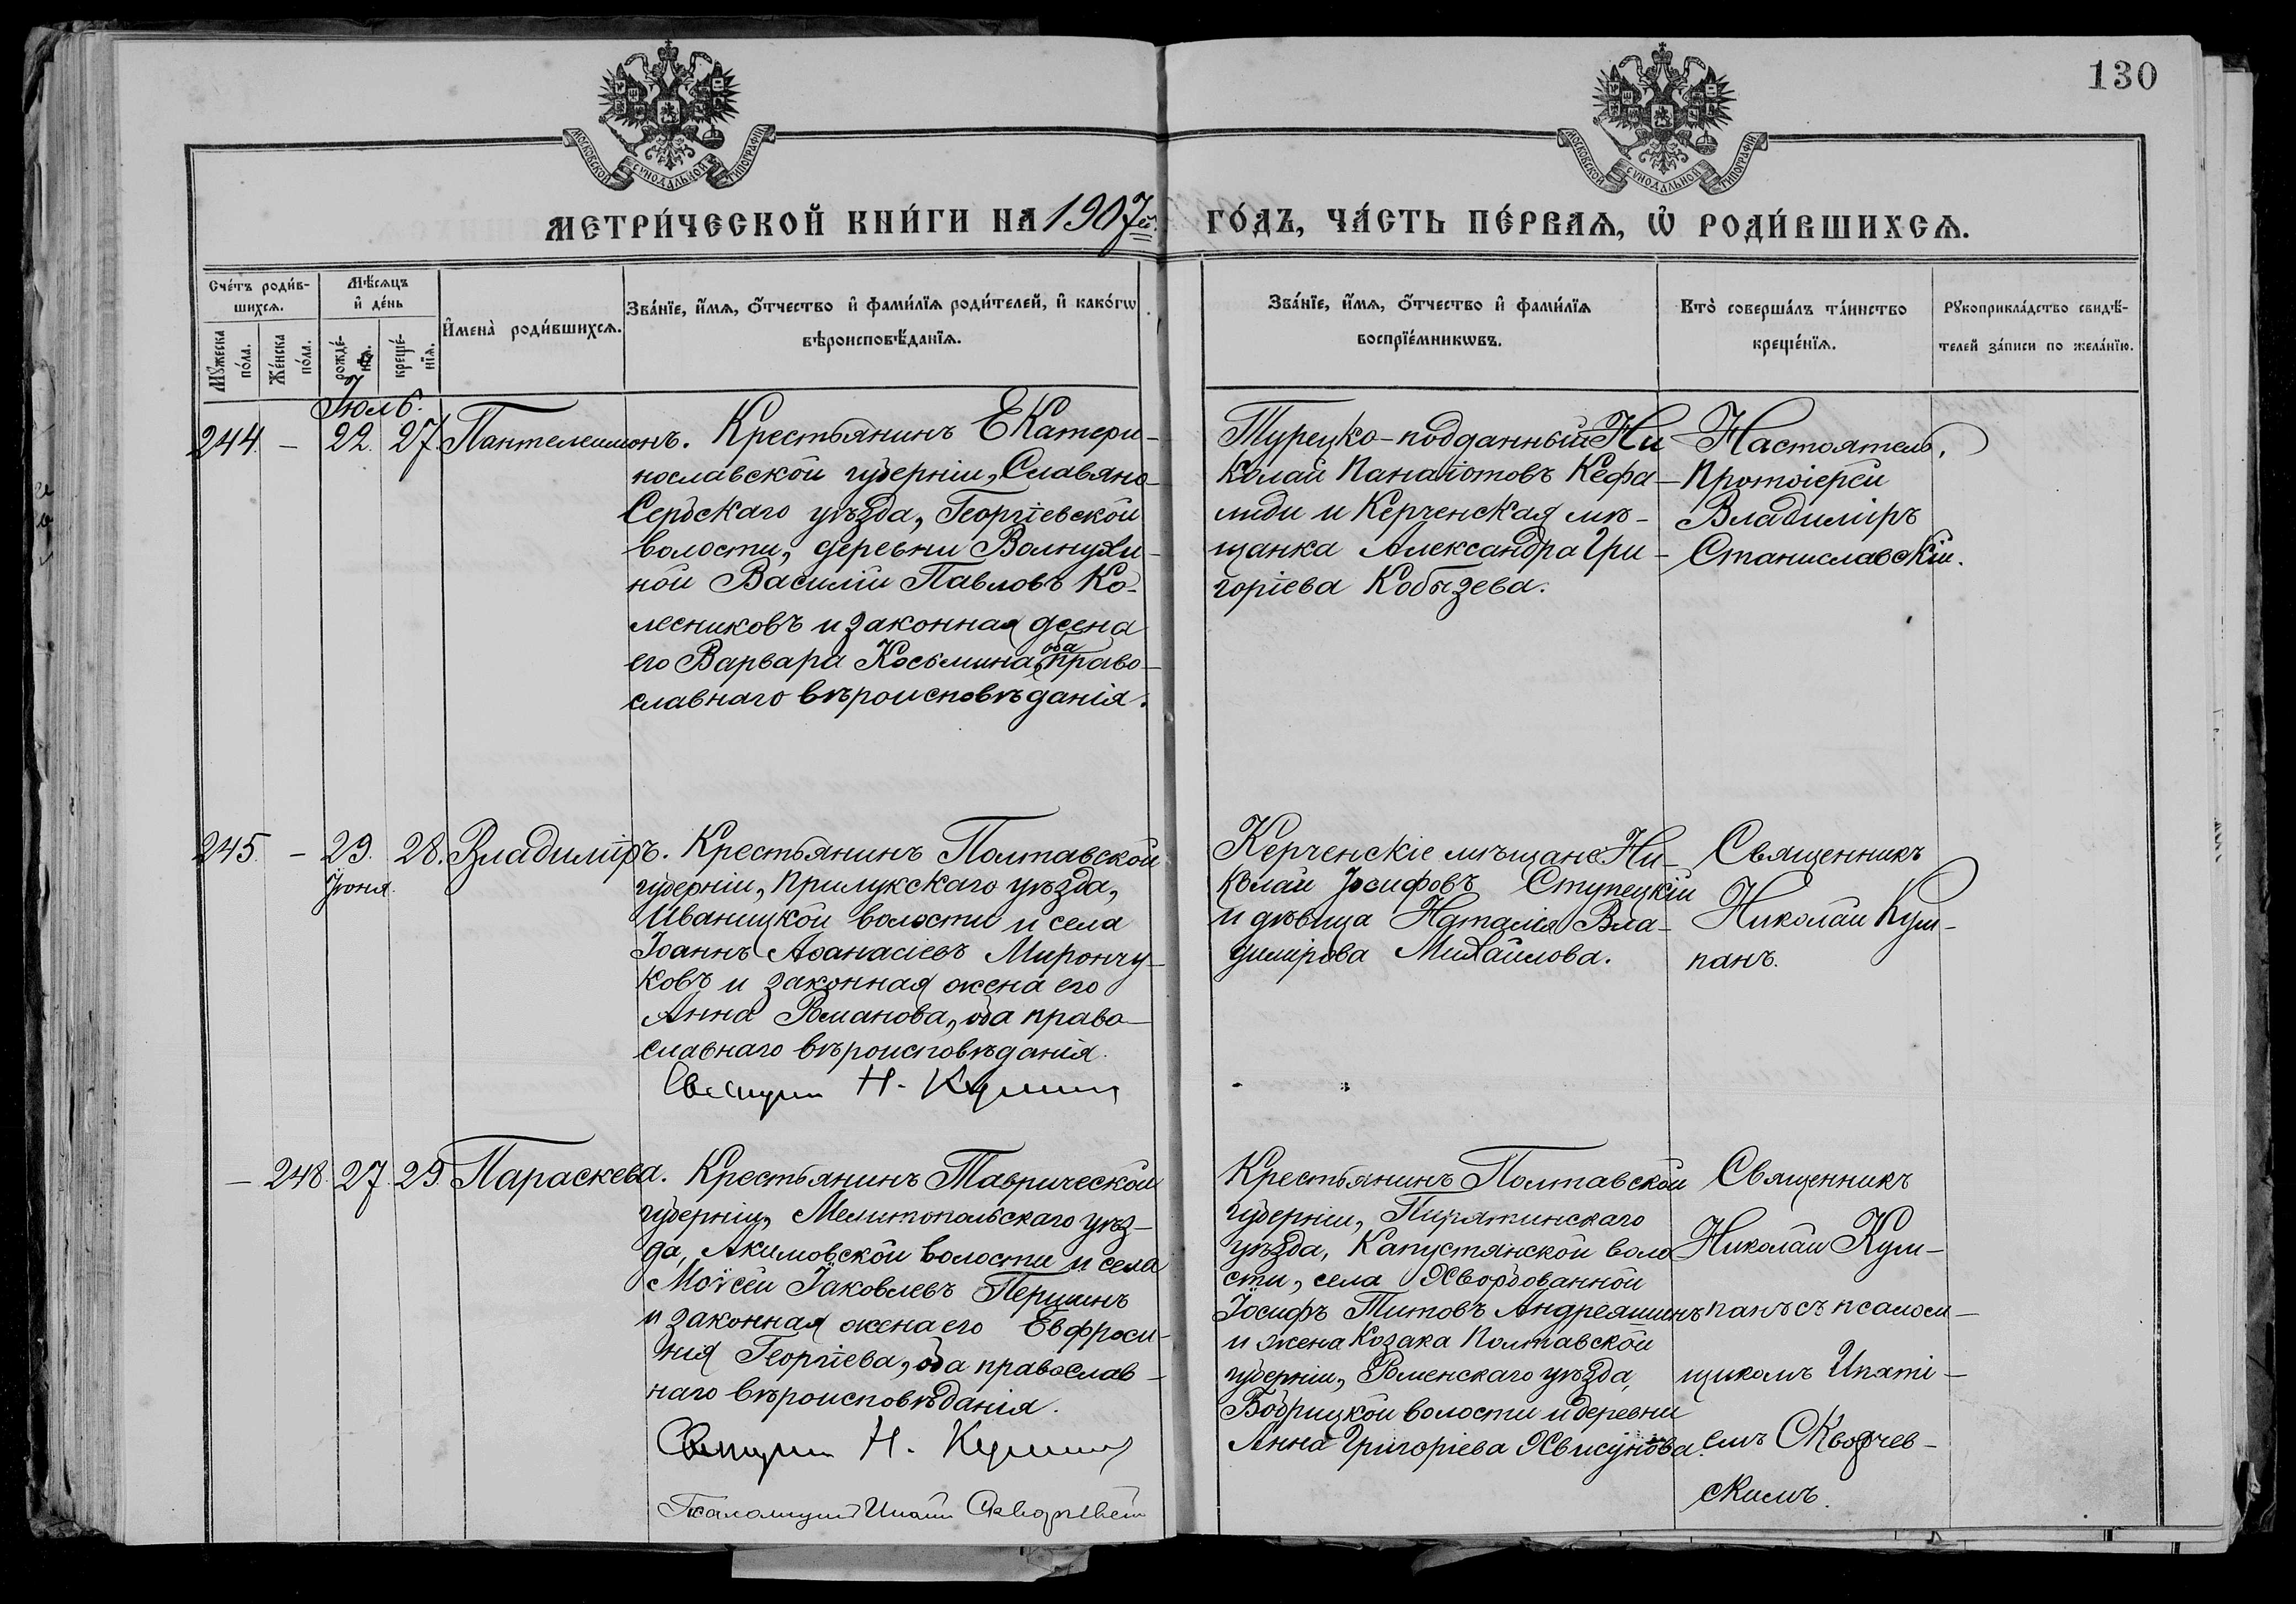 130
МОСКОВСКОЙ СѴНОДАЛЬНОЙ ТИПОГРАФІИ
МОСКОВСКОЙ СѴНОДАЛЬНОЙ ТИПОГРАФІИ
МЕТРИ́ЧЕСКОЙ КНИ́ГИ НА 1907й. ГО́ДЪ, ЧА́СТЬ ПЕ́РВАѦ, Ѡ҆ РОДИ́ВШИХСѦ.
Сче́тъ роди́в-
шихсѧ.
Мꙋ́жеска
по́ла.
Же́нска
по́ла.
Мѣ́сѧцъ
и҆ де́нь
рожде́-
нїѧ.
креще́-
нїѧ.
И҆мена̀ роди́вшихсѧ.
Зва́нїе, и҆́мѧ, ѻ҆́тчество и҆ фами́лїѧ роди́телей, и҆ како́гѡ
вѣроисповѣ́данїѧ.
Зва́нїе, и҆́мѧ, ѻ҆́тчество и҆ фами́лїѧ
воспрїе́мникѡвъ.
Кто̀ соверша́лъ та́инство
креще́нїѧ.
Рꙋкоприкла́дство свидѣ́-
телей за́писи по жела́нїю.
Іюль.
244. – 22. 27. Пантелеимонъ.
Крестьянинъ Екатери-
нославской губерніи, Славяно-
Сербскаго уѣзда, Георгіевской
волости, деревни Волнухи-
ной Василій Павловъ Ко-
лесниковъ и законная жена
его Варвара Косьмина, оба право-
славнаго вѣроисповѣданія.
Турецко-подданный Ни-
колай Панаіотовъ Кефа-
лиди и Керченская мѣ-
щанка Александра Гри-
горіева Кобызева.
Настоятель,
Протоіерей
Владиміръ
Станиславскій.
245. – 29. 28. Владиміръ.
Іюня.
Крестьянинъ Полтавской
губерніи, Прилукскаго уѣзда,
Иваницкой волости и села
Іоаннъ Аѳанасіевъ Мирончу-
ковъ и законная жена его
Анна Романова, оба право-
славнаго вѣроисповѣданія.
Священн Н. Кумпан
Керченскіе мѣщане Ни-
колай Іосифовъ Ступецкій
и дѣвица Наталія Вла-
димірова Михайлова.
Священникъ
Николай Кум-
панъ.
– 248. 27. 29. Параскева.
Крестьянинъ Таврической
губерніи, Мелитопольскаго уѣз-
да, Акимовской волости и села
Моѵсей Іаковлевъ Першинъ
и законная жена его Евфроси-
нія Георгіева, оба православ-
наго вѣроисповѣданія.
Священн Н. Кумпан
Псаломщик Ипатій
Крестьянинъ Полтавской
губерніи, Пирятинскаго
уѣзда, Капустянской воло-
сти, села
Іосифъ Титовъ Андреяшинъ
и жена козака Полтавской
губерніи, Роменскаго уѣзда,
Бобрицкой волости и деревни
Анна Григоріева
Священникъ
Николай Кум-
панъ съ псалом-
щикомъ Ипаті-
емъ Скворчев-
скимъ.